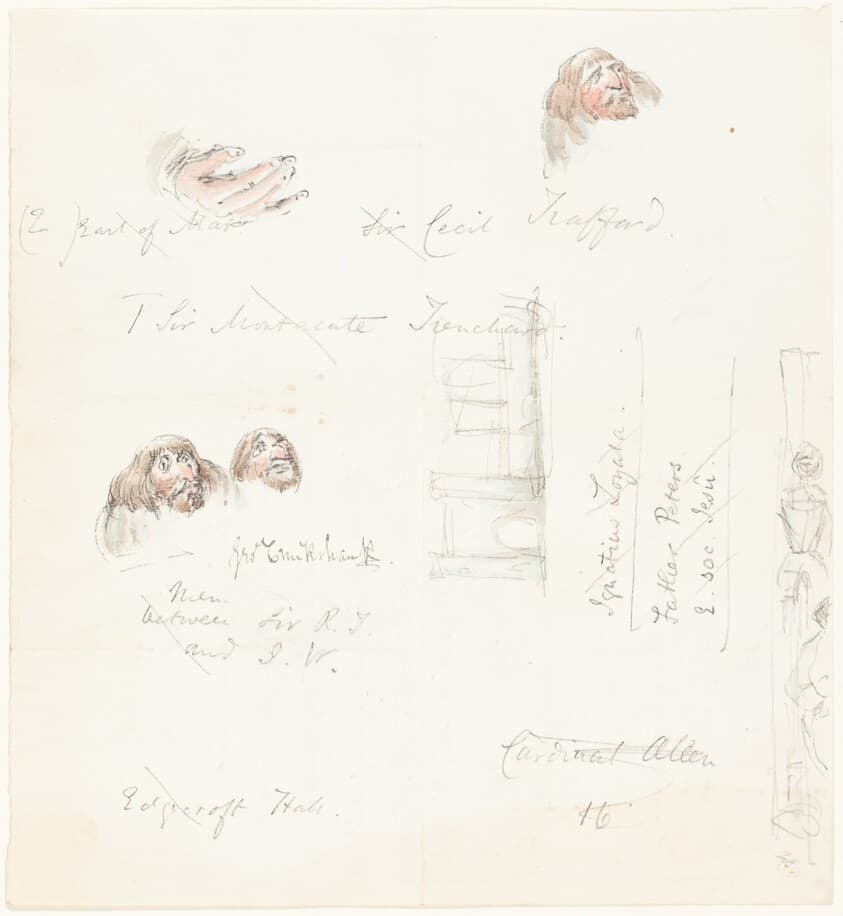 (2 Earl of Mar
Sir Cecil Trafford.
T Sir Montacute Trenchard.
Ignatius Loyala.
Father Peters
E. Soc. Jesu.
Geo Cruikshank.
Men
between Sir R. T.
and J. W.
Cardinal Allen
Edgecroft Hall.
16